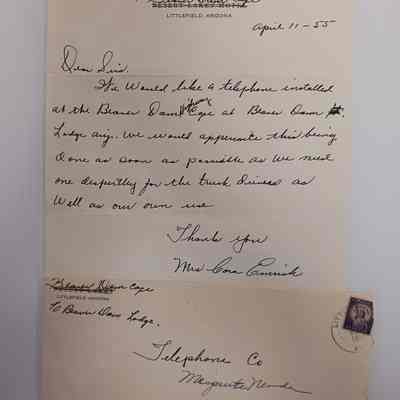 Beaver Dam Cafe
DESERT LAKES HOTEL
LITTLEFIELD, ARIZONA
April 11 - 55
Dear Sirs.
We Would like a telephone installed
at the Beaver Dam Cafe at Beaver Dam
Lodge Ariz. We would appreciate this being
done as soon as possible as We need
one despertly for the truck Drivers as
Well as our own use
Thank you
Mrs Cora
Beaver Dam Cafe
LITTLEFIELD, ARIZONA
% Beaver Dam Lodge.
Telephone Co